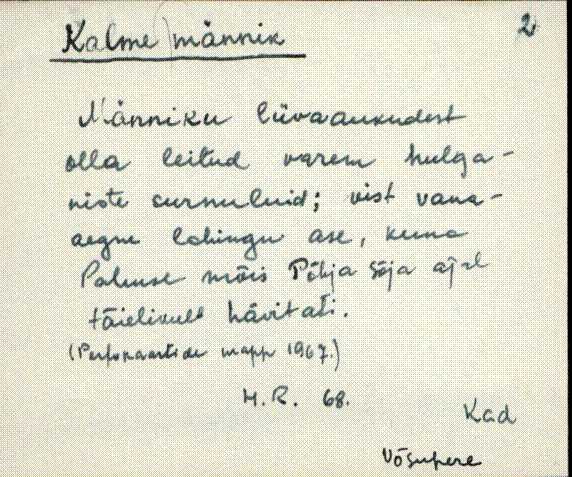 Kalme männik
2
Männiku liivaaukudest
olla leitud varem hulga-
niste surnuluid; vist vana-
aegne lahingu ase, kuna
Palmse mõis Põhja sõja ajal
täielikult hävitati.
(Perfokaartide mapp 1967.)
M.R. 68.
Kad
Võsupere